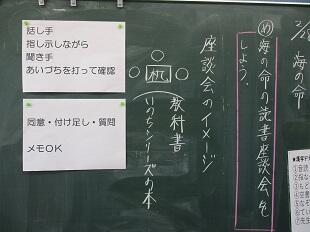 2/28 海の命
め 海の命の読書座談会を
しよう。
座談会のイメージ
机
教科書
いのちシリーズの本
話し手
指し示しながら
聞き手
あいづちを打って確認
同意・付け足し・質問
メモOK